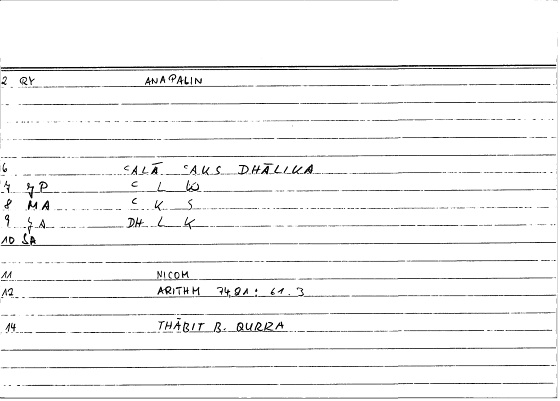 2 QY ANAPALIN
6 ʿALĀ ʿAKS DHĀLIKA
7 ʿ L
8 MA ʿ K S
9 DH L K
10 SA
11 NICOM
12 ARITHM 61.3
14 THĀBIT B. QURRA